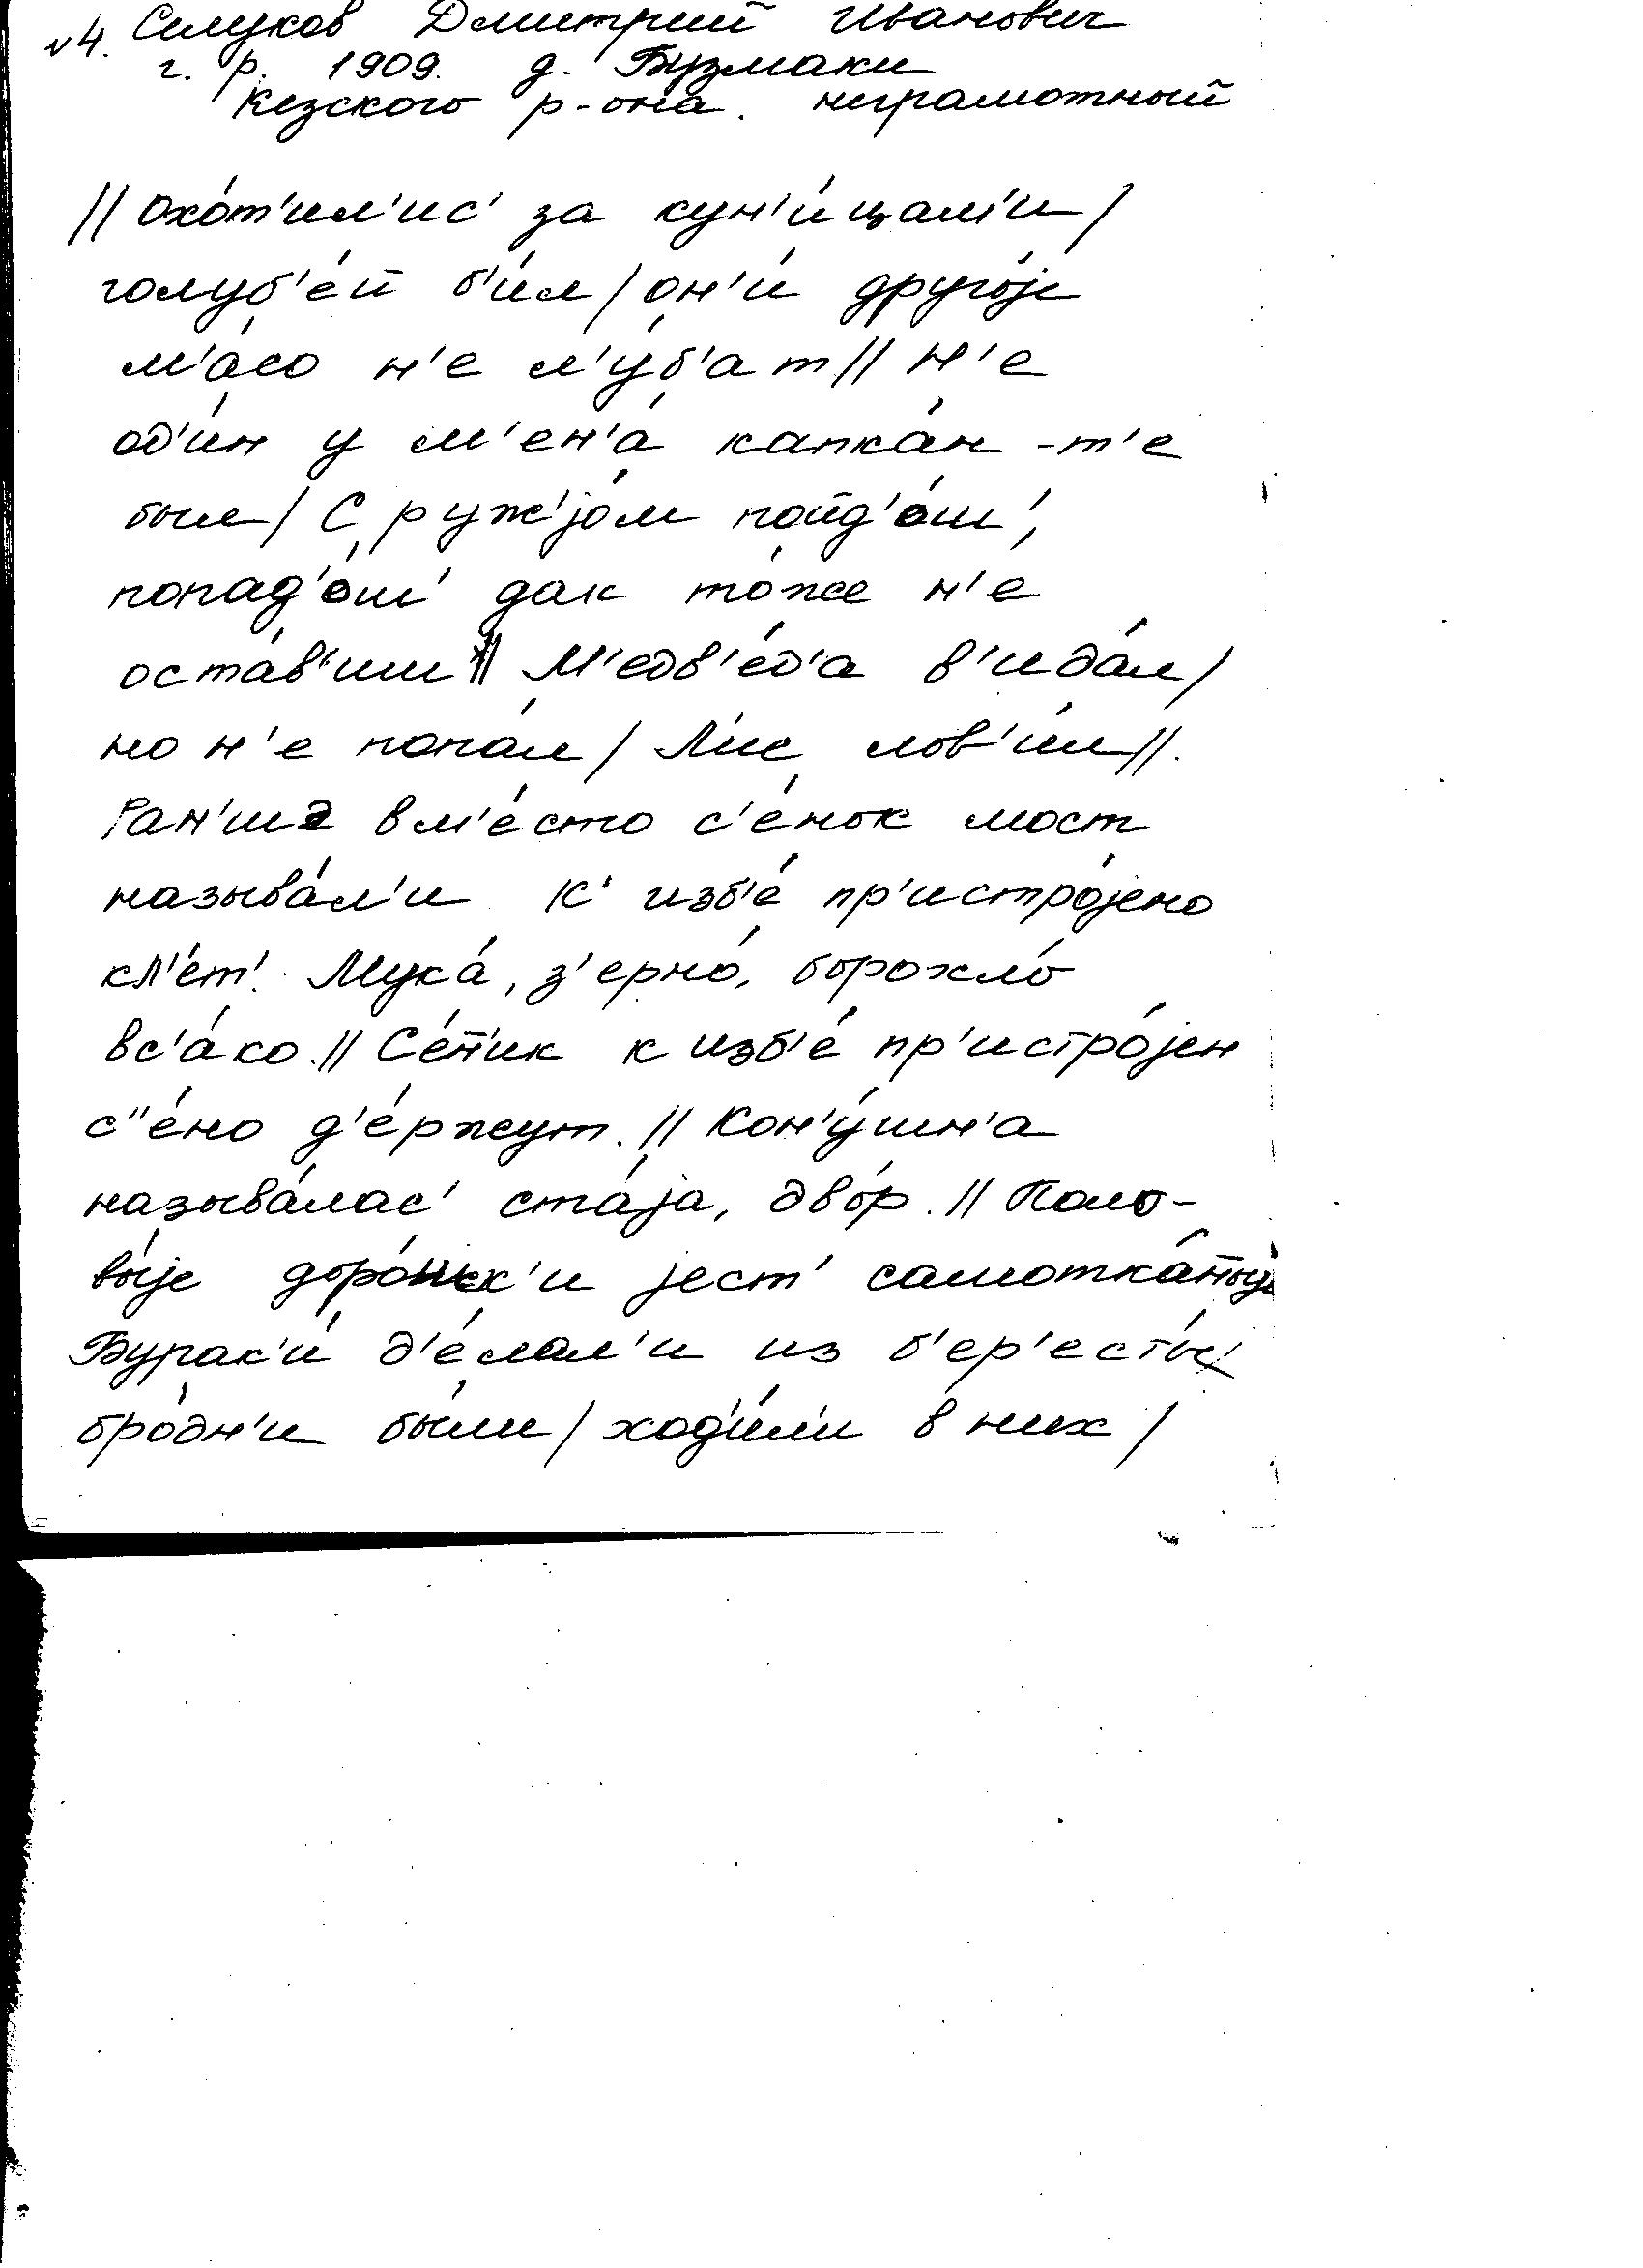 №4. Селуков Дмитрий Иванович
г. р. 1909. д. Бузмаки
Кезского р-она. неграмотный
|| Охо́т'ил'ис' за кун'и́цам'и /
голуб'е́й б'ил / он'и́ друго́је
м'а́со н'е л'у́б'ат || Н'е
од'и́н у м'ен'а́ капка́н -т'е
был / С руж'јо́м пойд'о́ш',
попад'о́ш' дак то́же н'е
оста́в'иш || М'едв'е́д'а в'ида́л /
но н'е попа́л / Лис лов'и́л ||.
Ран'ше вм'е́сто с'е́нок мост
называ́л'и К' изб'е́ пр'истро́јено
кл'е́т'. Мука́, з'ерно́, борохло́
вс'а́ко. || Се́н'ик к изб'е́ пр'истро́јен
с"е́но д'е́ржут. || Кон'у́шн'а
называ́лас' ста́ја, дво́р. || Поло-
вы́је доро́жк'и јест' самотка́ныје
Бурак'и́ д'е́лал'и из б'ер'есты́
бро́дн'и бы́ли / ход'и́л'и в них /